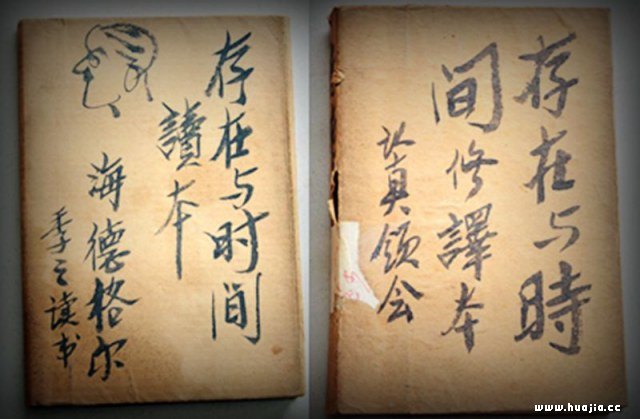 存在与时间
讀本
海德格尔
季之读书
存在与時
间修譯本
认真领会
www.huajia.cc